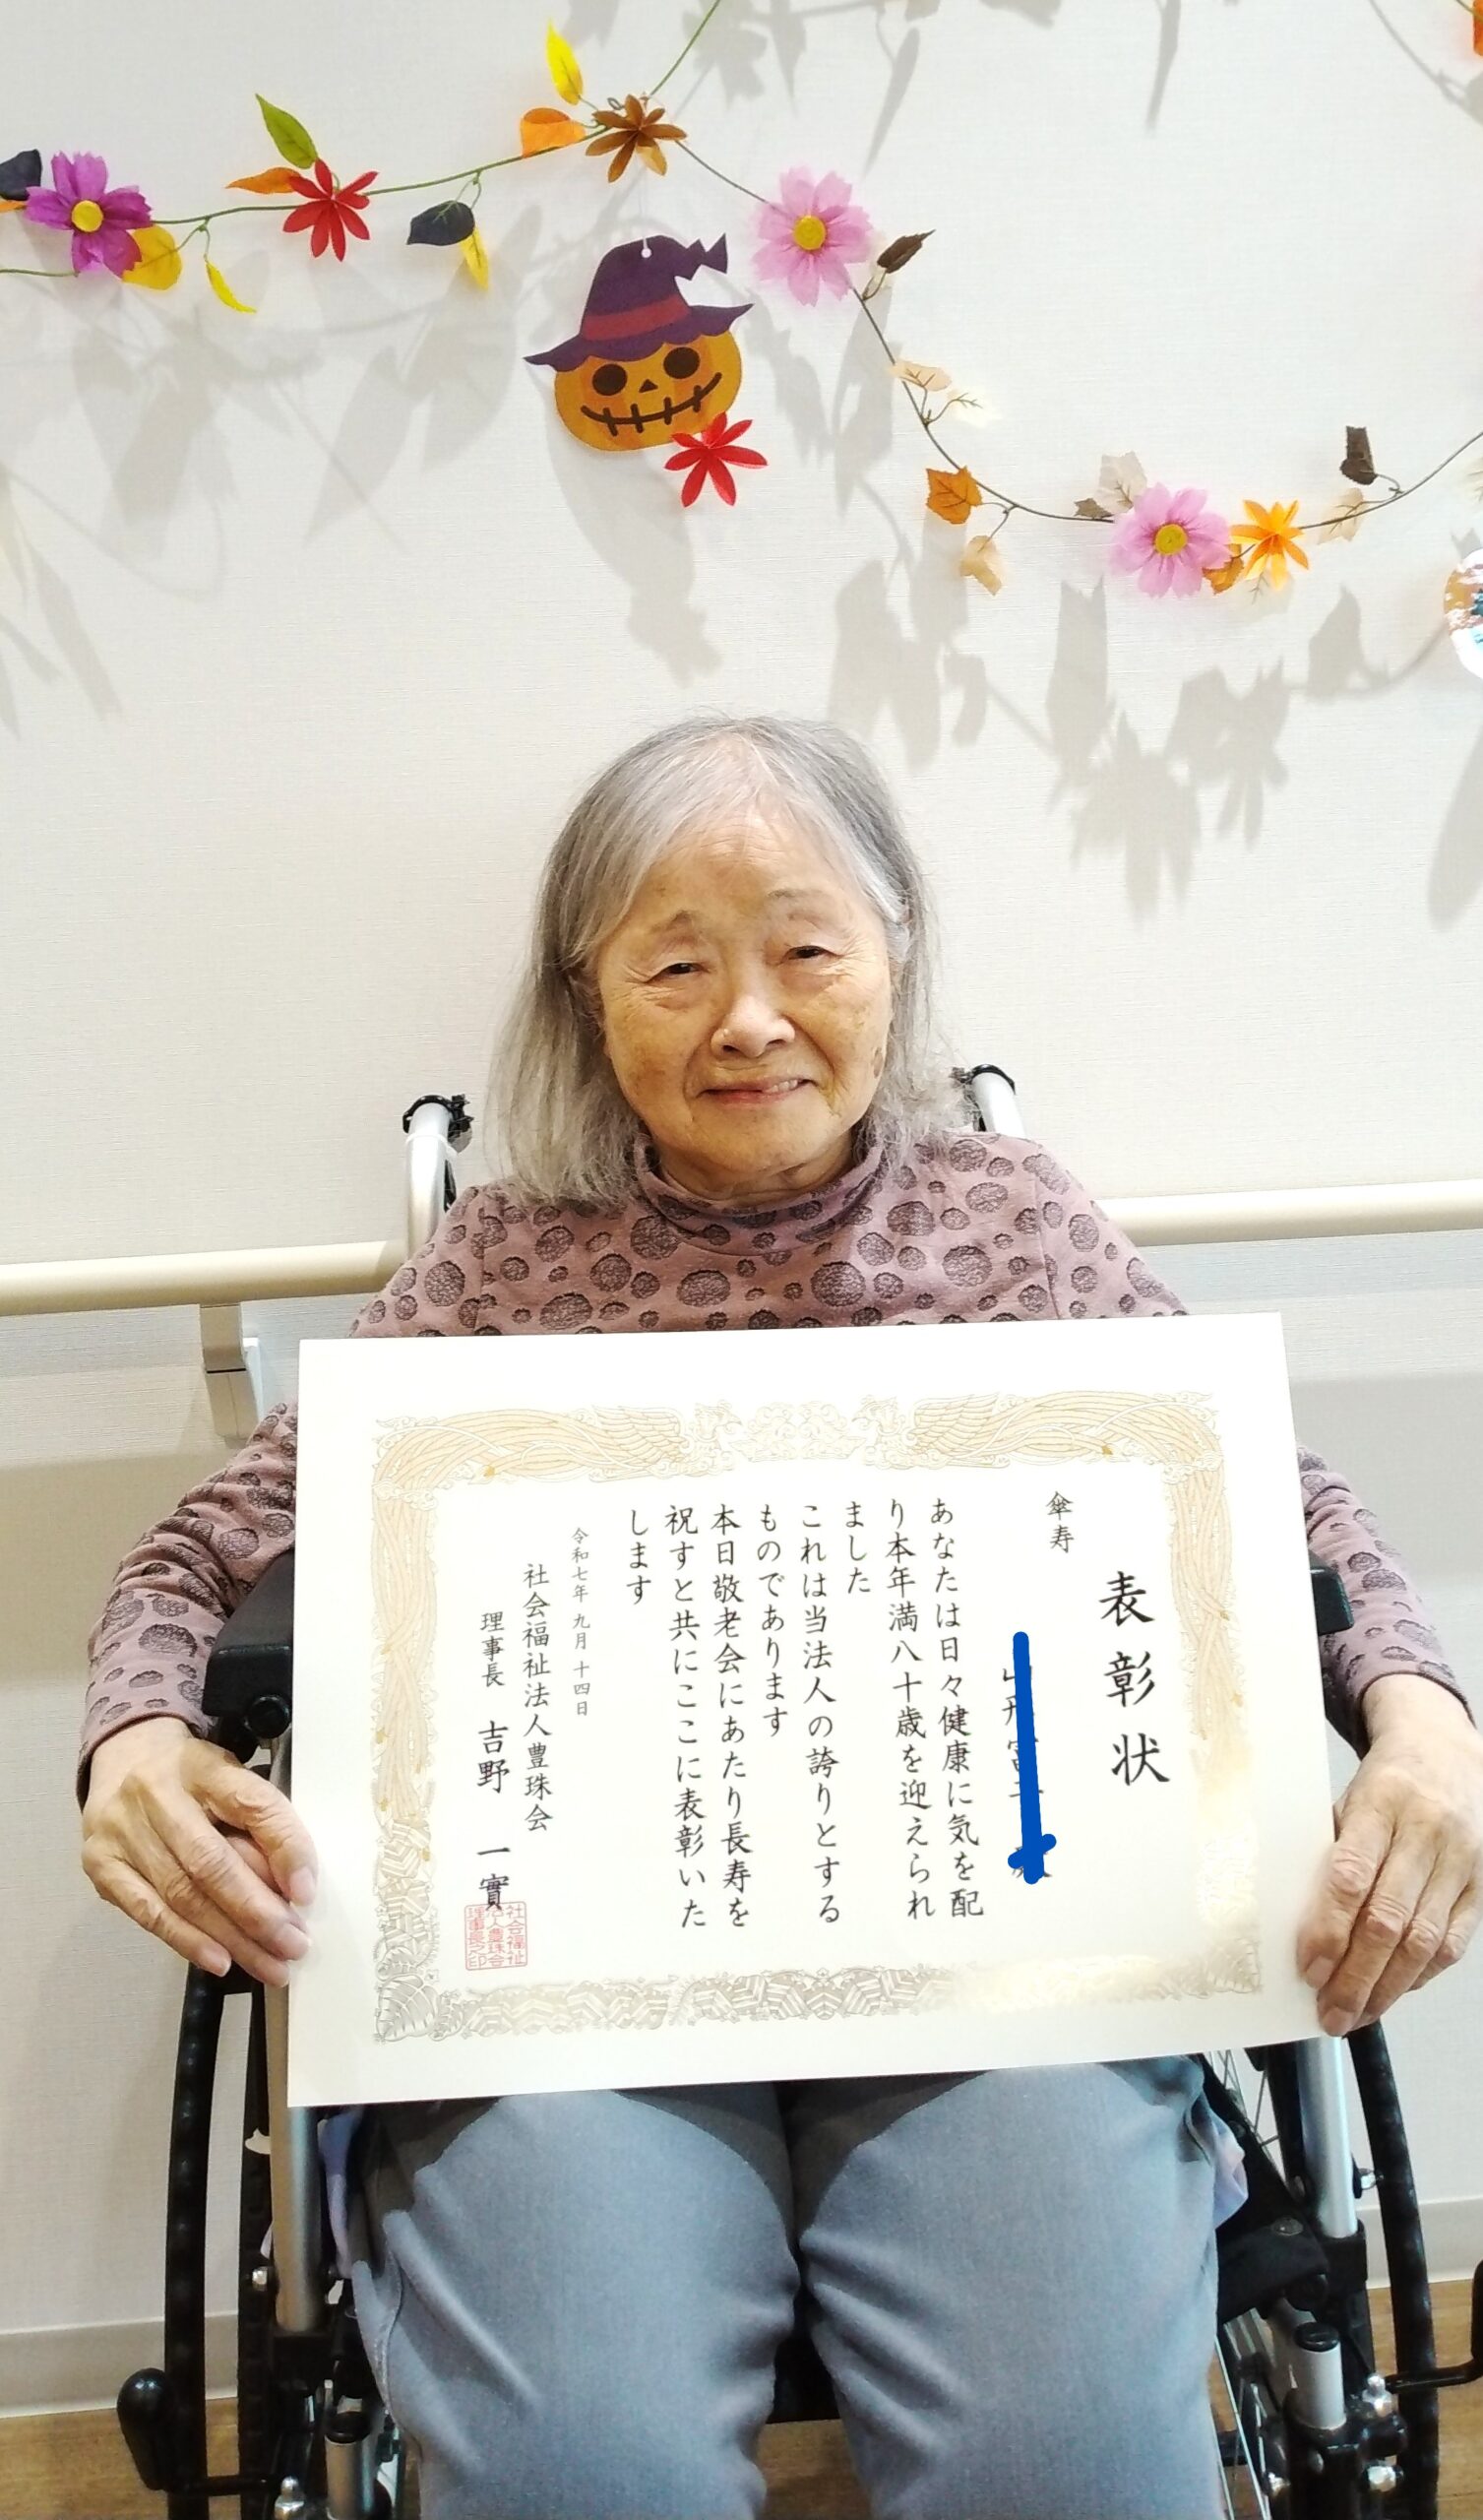 表彰状
傘寿
あなたは日々健康に気を配
り本年満八十歳を迎えられ
ました
これは当法人の誇りとする
ものであります
本日敬老会にあたり長寿を
祝すと共にここに表彰いた
します
令和七年 九月 十四日
社会福祉法人豊珠会
理事長 吉野 一實
社会福祉
法人豊珠会
理事長之印